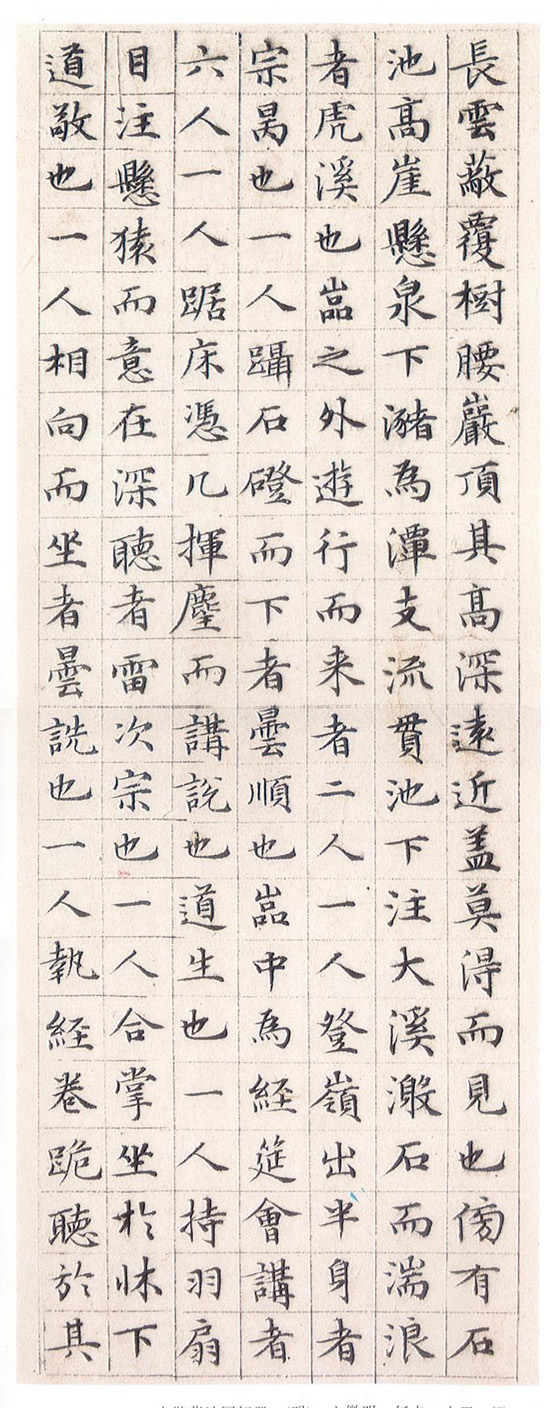 長雲蔽覆樹腰巖頂其高深遠近盖莫得而見也傍有石
池高崖懸泉下瀦為潭支流貫池下注大溪激石而湍浪
者虎溪也嵓之外遊行而来者二人一人登嶺出半身者
宗昺也一人躡石磴而下者曇順也嵓中為經筵會講者
六人一人踞床憑几揮麈而講說也道生也一人持羽扇
目注懸猿而意在深聽者雷次宗也一人合掌坐於牀下
道敬也一人相向而坐者曇詵也一人執經卷跪聽於其